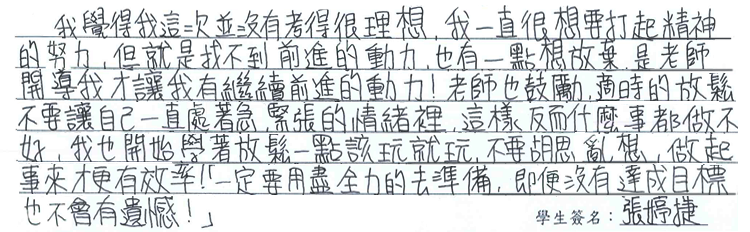 我覺得我這次並沒有考得很理想，我一直很想要打起精神
的努力，但就是找不到前進的動力，也有一點想放棄，是老師
開導我才讓我有繼續前進的動力！老師也鼓勵，適時的放鬆
不要讓自己一直處著急，緊張的情緒裡，這樣反而什麼事都做不
好，我也開始學著放鬆一點該玩就玩，不要胡思亂想，做起
事來才更有效率！「一定要用盡全力的去準備，即便沒有達成目標
也不會有遺憾！」 學生簽名：張婷捷